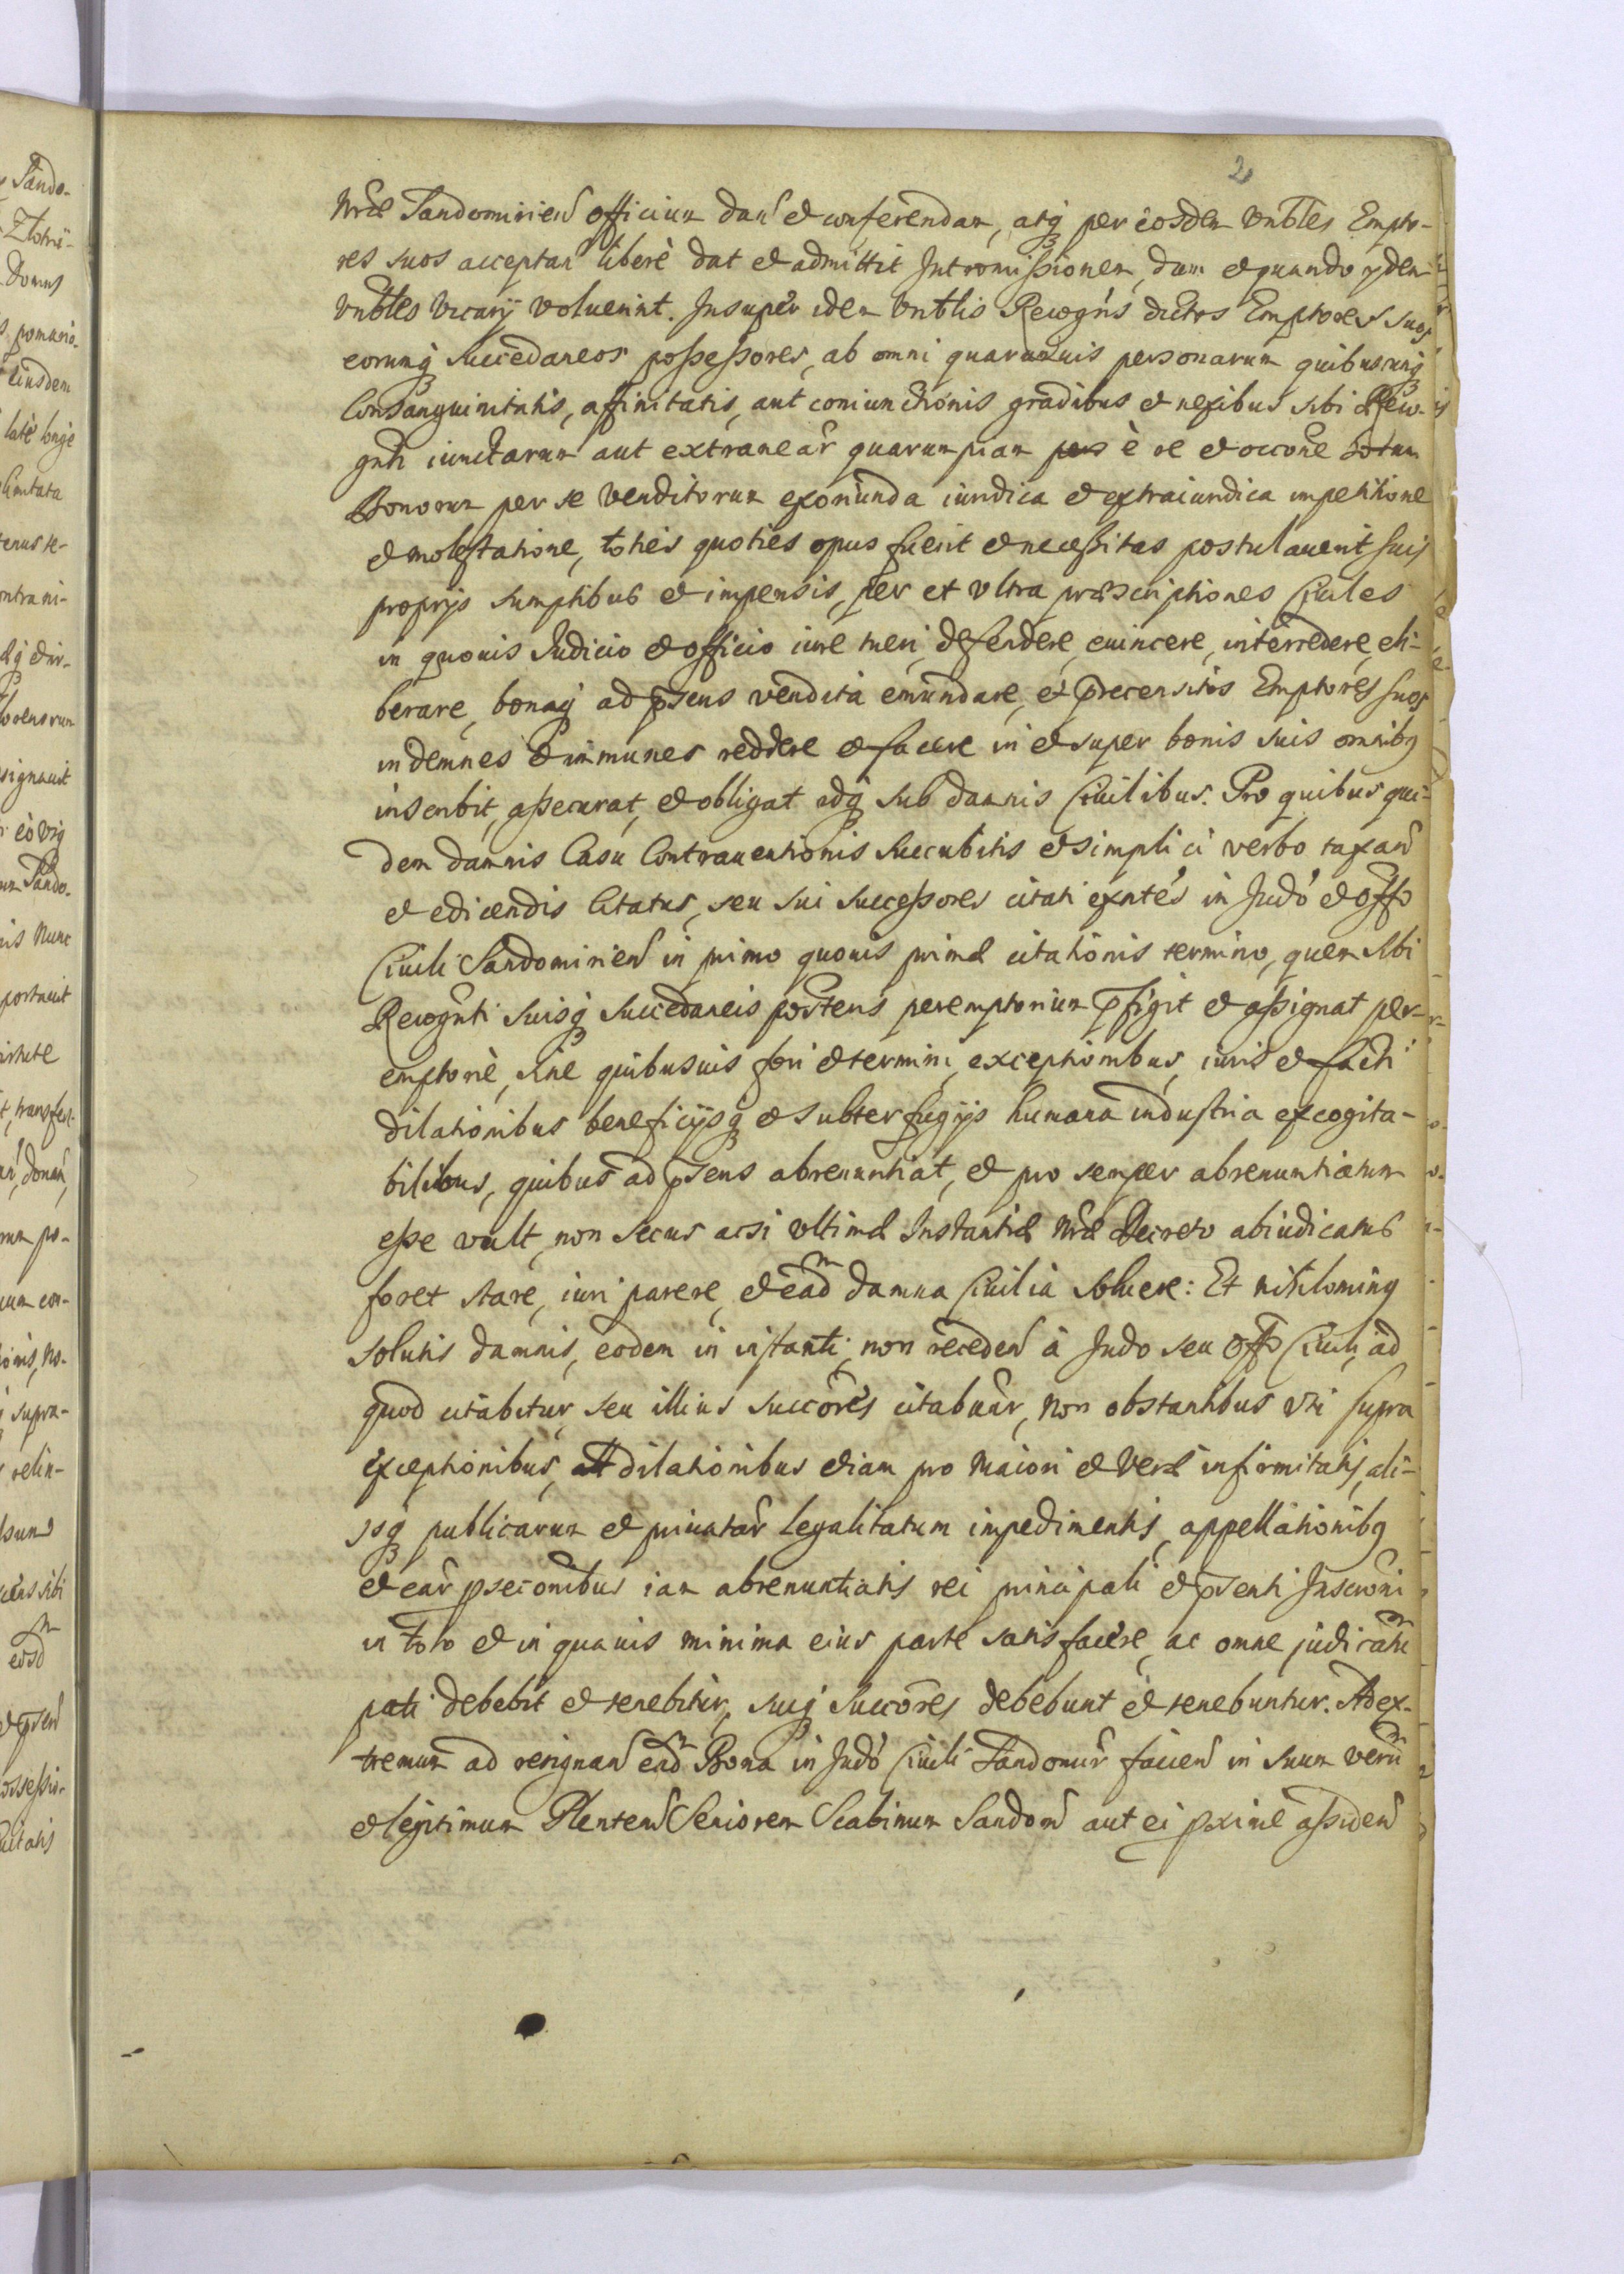 2
Nrae Sandomirien officium dan et conferendam, atq per eosdem Vnbles Empto-
res suos acceptan liberè dat et admittit Intromissionem, dum et quando ijdem
Vnbles Vicarij voluerint. Insuper idem Vnblis Recogns dictos Emptores suos
eorumq succedaneos possessores, ab omni quarumuis personarum quibuscunq
Consanguinitatis, affinitatis, aut coniunctionis gradibus et nexibus sibi Reco-
gnti iunctarum aut extranear quarumpiam è re et occone
Bonorum per se venditorum exoriunda iuridica et extraiuridica impetitione
et molestatione, toties quoties opus fuerit et necessitas postulauerit suis
proprijs sumptibus et impensis, per et vltra praescriptiones Ciuiles
in quouis Judicio et officio iure tueri, defendere, euincere, intercedere, eli-
berare, bonaq ad psens vendita emundare, et precensitos Emptores suos
indemnes et immunes reddere et facere in et super bonis suis omnibq
inscribit, assecurat, et obligat idq sub damnis Ciuilibus. Pro quibus qui-
dem damnis Casu Contrauentionis succubitis et simplici verbo taxan
et edicendis Citatus, seu sui successores citati exntes in Judo et offo
Ciuili Sandomirien in primo quouis primae citationis termino, quem sibi
Recognti suisq succedaneis posteris peremptorium pfigit et assignat per-
emptoriè, sine quibusuis fori et termini exceptionibus, iuris et facti
dilationibus beneficijsq et subterfugijs humana industria excogita-
bilibus, quibus ad psens abrenuntiat, et pro semper abrenuntiatum
esse vult, non secus acsi vltimae Instantiae Nrae Decreto abiudicatus
foret stare, iuri parere, et eadm damna Ciuilia soluere: Et nihilominq
solutis damnis, eodem in instanti, non receden à Judo seu offo Ciuili, ad
quod citabitur, seu illius succores citabunr, non obstantibus vti supra
exceptionibus, dilationibus etiam pro maiori et verae infirmitatis, ali-
jsq publicarum et priuatar legalitatum impedimentis, appellationibq
et ear psecōnibus iam abrenuntiatis rei principali et psenti Inscroni
in toto et in quauis minima eius parte satisfacere, ac omne judicatu
pati debebit et tenebitur, suiq succores debebunt et tenebuntur. Ad ex-
tremum ad resignan eadm Bona in Judo Ciuili Sandomir facien in suum veru
et legitimum Plenten Seniorem Scabinum Sandom aut ei pxime assiden